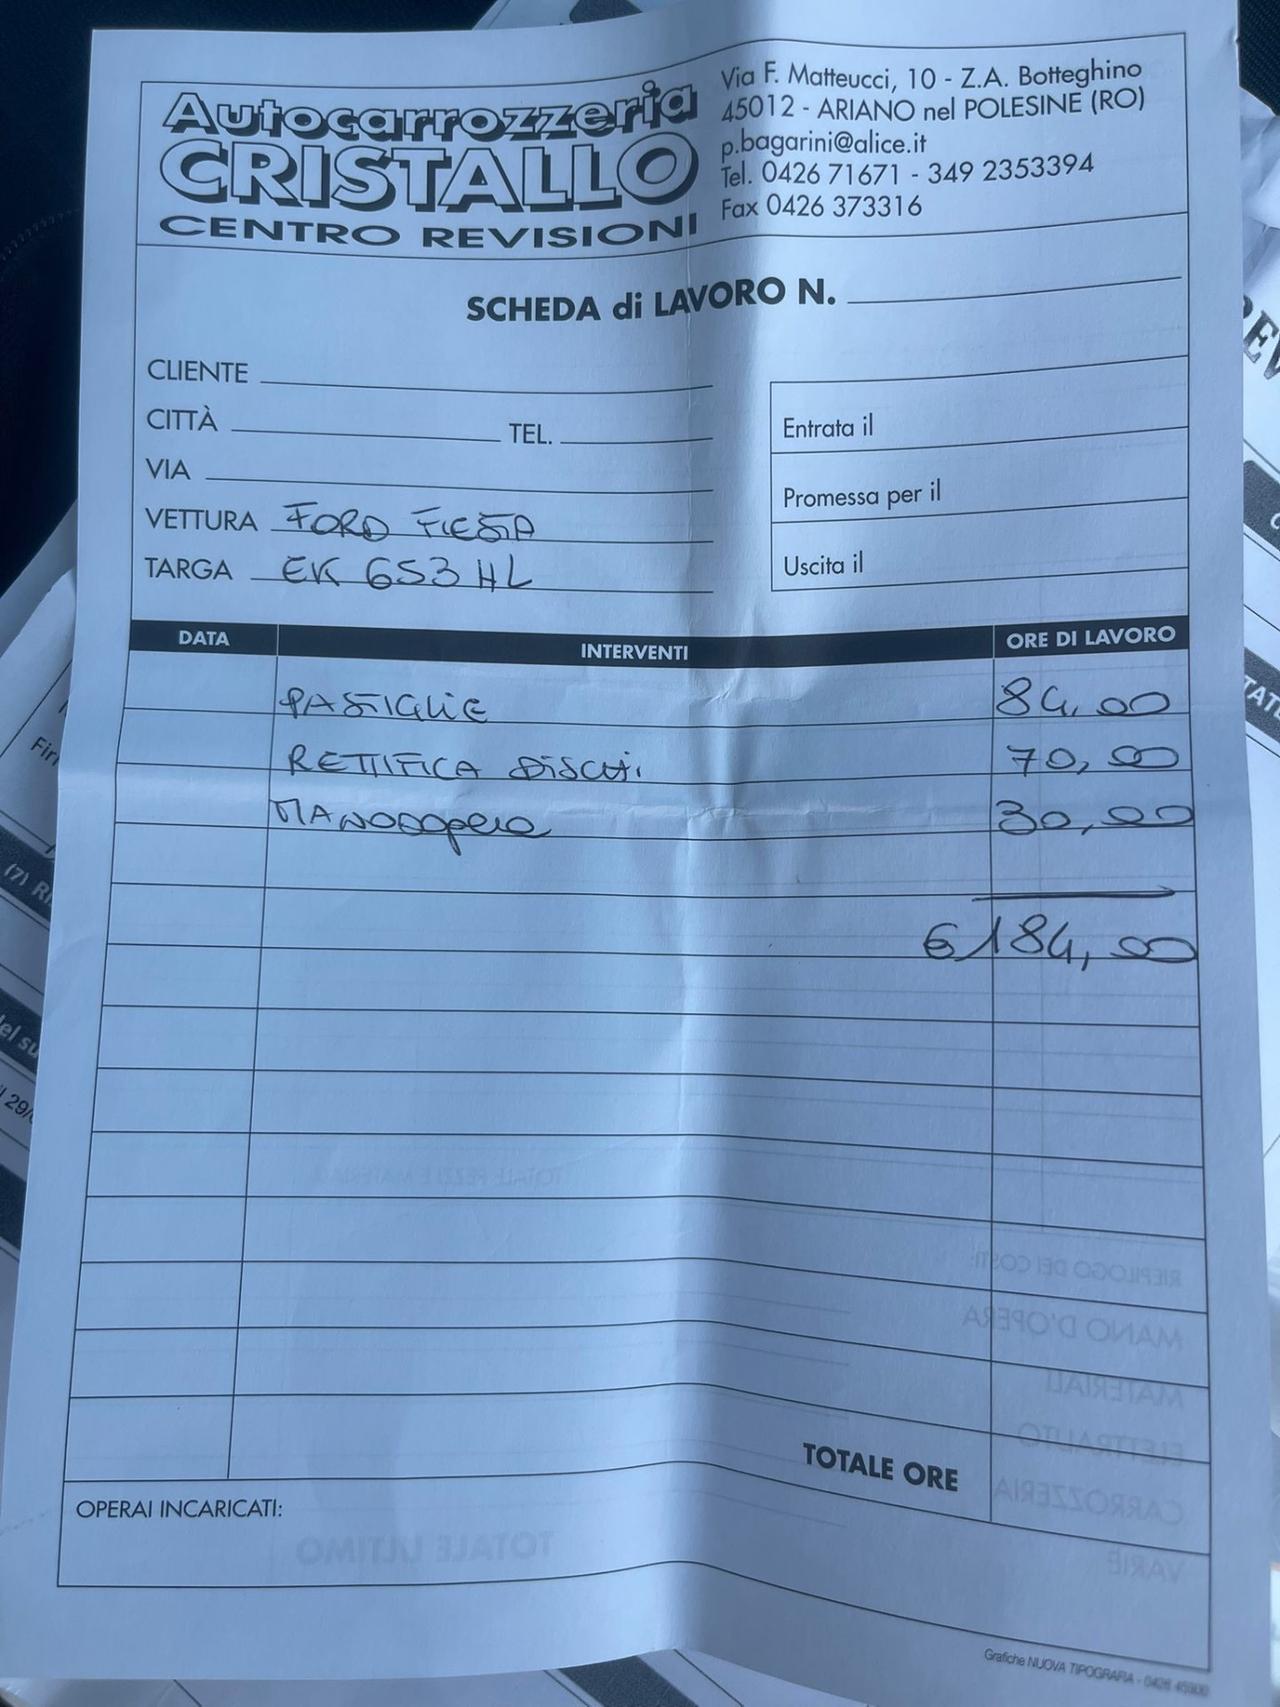 Autocarrozzeria
CRISTALLO
CENTRO REVISIONI
Via F. Matteucci, 10 - Z.A. Botteghino
45012 - ARIANO nel POLESINE (RO)
p.bagarini@alice.it
Tel. 0426 71671 - 349 2353394
Fax 0426 373316
SCHEDA di LAVORO N.
CLIENTE
CITTÀ TEL.
VIA
VETTURA FORD FIESTA
TARGA EK 653 HL
Entrata il
Promessa per il
Uscita il
DATA INTERVENTI ORE DI LAVORO
PASTIGLIE 84,00
RETTIFICA DISCHI 70,00
MANODOPERA 30,00
€ 184,00
TOTALE PEZZI E MATERIALI
RIEPILOGO DEI COSTI:
MANO D'OPERA
MATERIALI
ELETTRAUTO
CARROZZERIA
VARIE
TOTALE ULTIMO
TOTALE ORE
OPERAI INCARICATI:
Grafiche NUOVA TIPOGRAFIA - 0426 45900